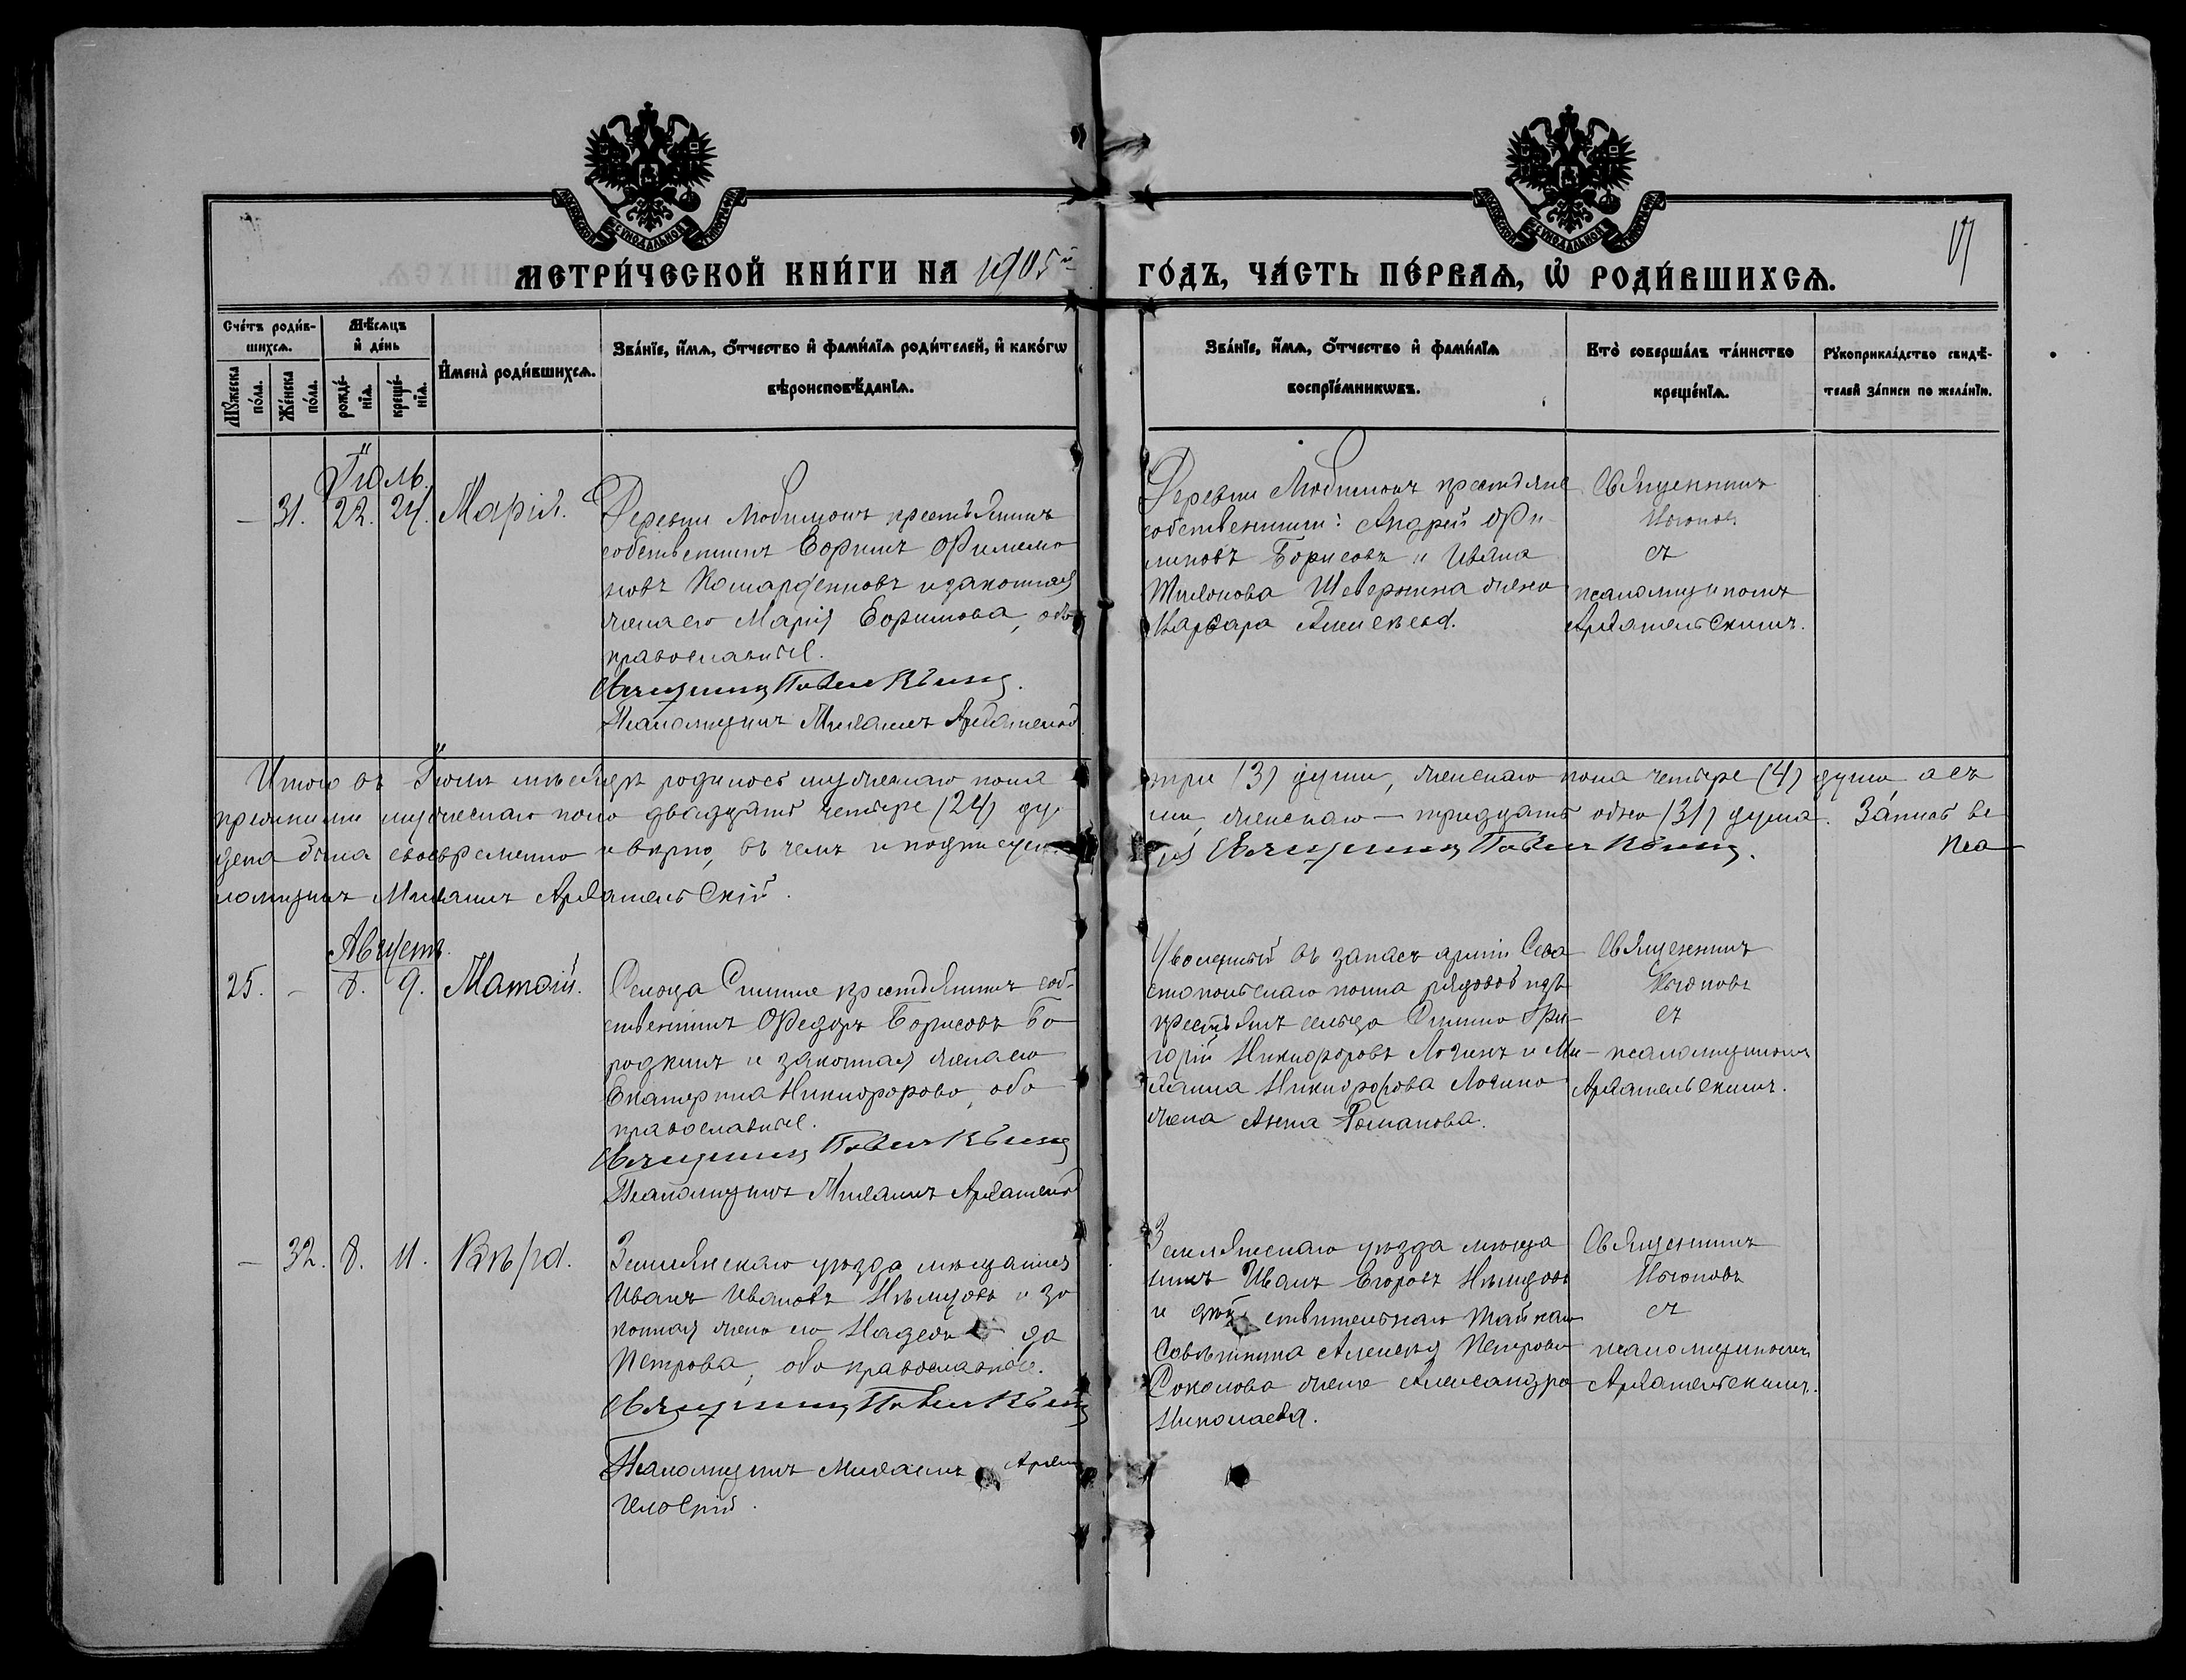 МЕТРИ́ЧЕСКОЙ КНИ́ГИ НА 1905й ГО́ДЪ, ЧА́СТЬ ПЕ́РВАѦ, Ѡ РОДИ́ВШИХСѦ.
Сче́тъ роди́в-
шихсѧ.
Мѣ́сѧцъ
и҆ де́нь
И҆мена̀ роди́вшихсѧ.
Зва́нїе, и҆́мѧ, ѻ҆́тчество и҆ фами́лїѧ роди́телей, и҆ како́гѡ
вѣроисповѣ́данїѧ.
Мꙋ́жеска
по́ла.
Же́нска
по́ла.
рожде́-
нїѧ.
креще́-
нїѧ.
Зва́нїе, и҆́мѧ, ѻ҆́тчество и҆ фами́лїѧ
воспрїе́мникѡвъ.
Кто̀ соверша́лъ та́инство
креще́нїѧ.
Рꙋкоприкла́дство свидѣ́-
телей за́писи по жела́нїю.
Іюль.
— 31. 22. 24. Марія.
Деревни Любимовъ крестьянинъ
собственникъ Ефимъ Филимо
новъ и законная
жена его Марія Ефимова, оба
православные.
Священникъ Павелъ
Псаломщикъ Михаилъ Архангельс
Деревни Любимовъ крестьяне
собственники: Андрей Фи
липовъ Борисовъ и Ивана
Тихонова жена
Варвара Алексѣева.
Священникъ
съ
псаломщикомъ
Архангельскимъ.
Итого въ Іюлѣ мѣсяцѣ родилось мужескаго пола три (3) души, женскаго пола четыре (4) души, а съ
прежними мужескаго пола двадцать четыре (24) ду
ши, женскаго — тридцать одна (31) душа. Запись ве
дена была своевременно и вѣрно, въ чемъ и подписуем
ся Священникъ Павелъ Пса
ломщикъ Михаилъ Архангельскій.
Августъ.
25. — 8. 9. Матѳій.
Сельца крестьянинъ соб-
ственникъ Федоръ Борисовъ Бо
родкинъ и законная жена его
Екатерина Никифорова, оба
православные.
Священникъ Павелъ
Псаломщикъ Михаилъ Архангельс
Уволенный въ запасъ арміи Сева
стопольскаго полка рядовой изъ
крестьянъ сельца Гри-
горій Никифоровъ и Ми-
хаила Никифорова
жена Анна Романова.
Священникъ
съ
псаломщикомъ
Архангельскимъ.
— 32. 8. 11. Вѣра.
Землянскаго уѣзда мѣщанинъ
Иванъ Ивановъ Нѣмцовъ и за
конная жена его Надежда
Петрова, оба православные.
Священникъ Павелъ
Псаломщикъ Михаилъ Архан
гельскій.
Землянскаго уѣзда мѣща
нинъ Иванъ Егоровъ Нѣмцовъ
и дѣйствительнаго тайнаго
Совѣтника Алексѣя Петрова
Соколова жена Александра
Николаева.
Священникъ
съ
псаломщикомъ
Архангельскимъ.